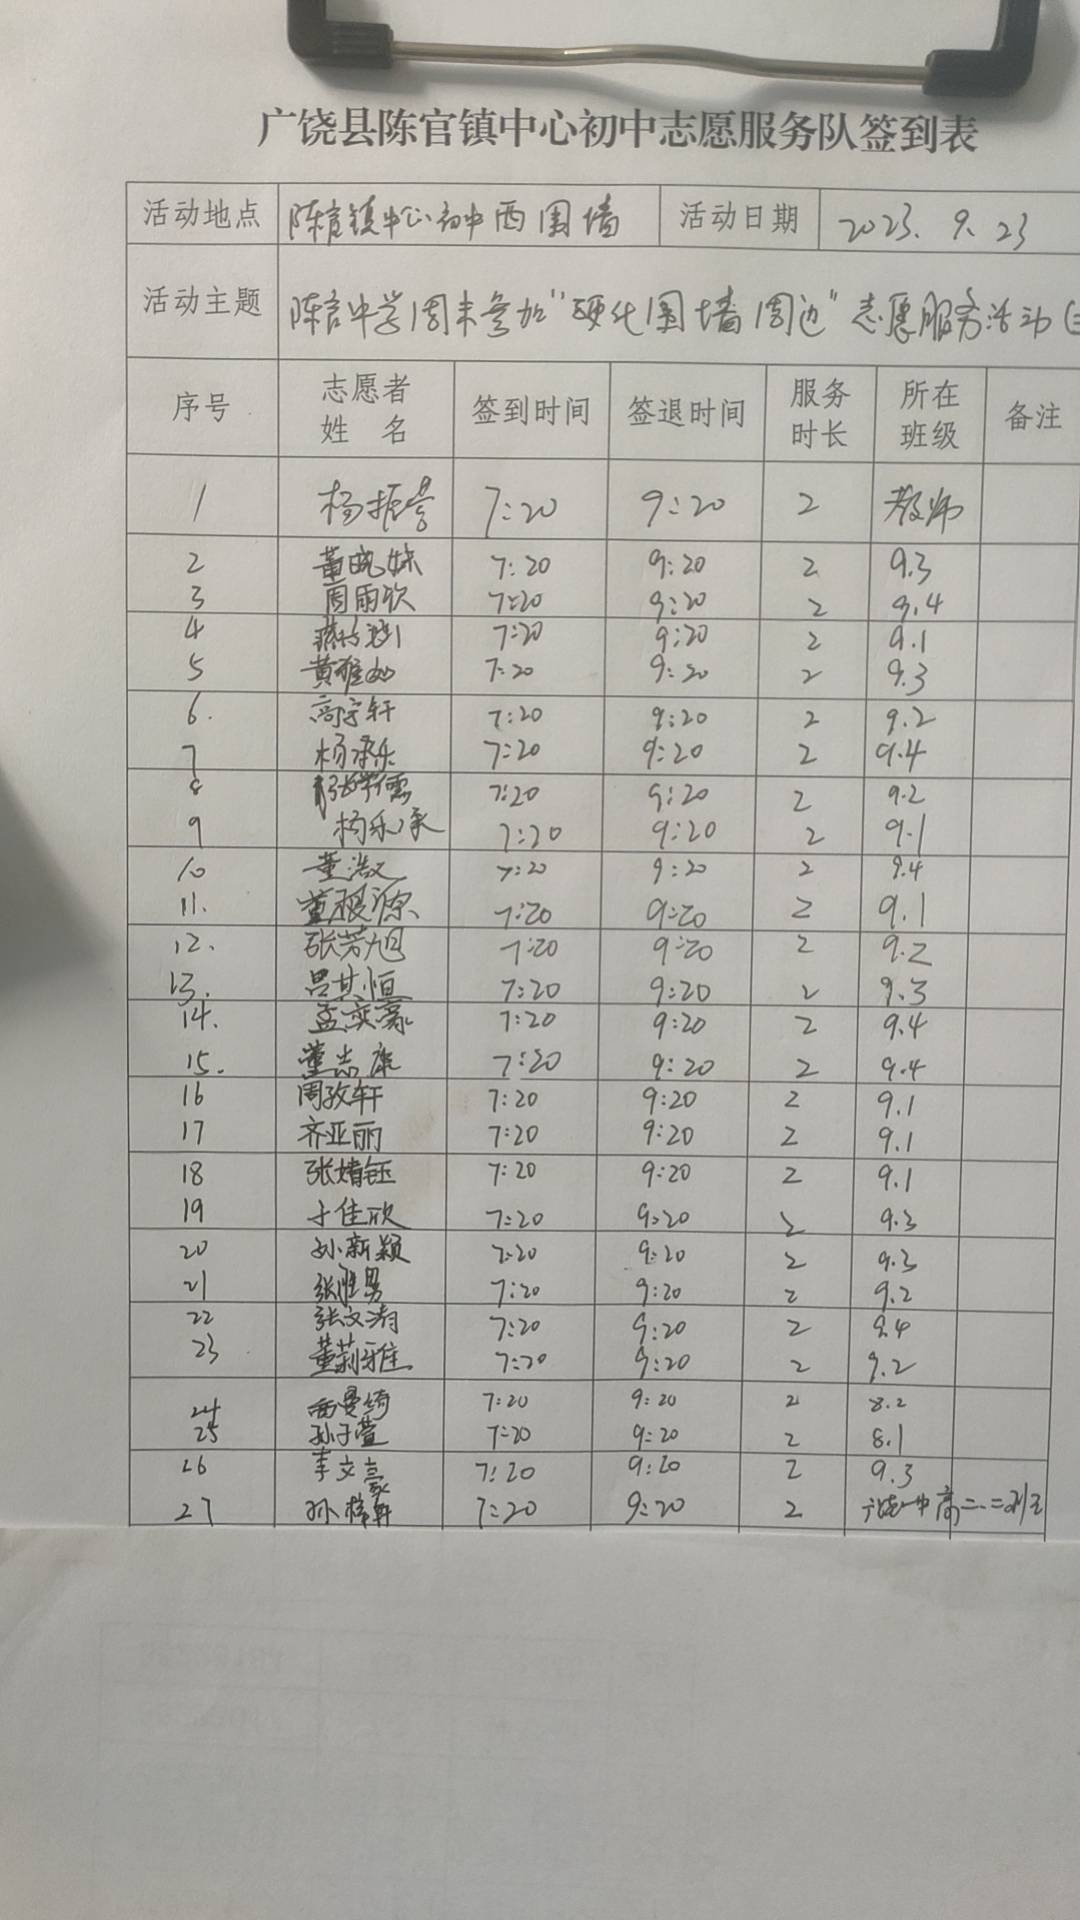 广饶县陈官镇中心初中志愿服务队签到表
活动地点 陈官镇中心初中西围墙 活动日期 2023.9.23
活动主题 陈官中学周末参加"硬化围墙周边"志愿服务活动(
序号 志愿者姓名 签到时间 签退时间 服务时长 所在班级 备注
1 杨振营 7:20 9:20 2 教师
2 董晓妹 7:20 9:20 2 9.3
3 周雨欣 7:20 9:20 2 9.4
4 7:20 9:20 2 9.1
5 黄雅如 7:20 9:20 2 9.3
6. 高宇轩 7:20 9:20 2 9.2
7 杨承乐 7:20 9:20 2 9.4
8 张学儒 7:20 9:20 2 9.2
9 杨乐承 7:20 9:20 2 9.1
10 董浩文 7:20 9:20 2 9.4
11. 董振源 7:20 9:20 2 9.1
12. 张芳旭 7:20 9:20 2 9.2
13. 吕其恒 7:20 9:20 2 9.3
14. 孟奕豪 7:20 9:20 2 9.4
15. 董志康 7:20 9:20 2 9.4
16 周孜轩 7:20 9:20 2 9.1
17 齐亚丽 7:20 9:20 2 9.1
18 张婧钰 7:20 9:20 2 9.1
19 于佳欣 7:20 9:20 2 9.3
20 孙新颖 7:20 9:20 2 9.3
21 张胜男 7:20 9:20 2 9.2
22 张文涛 7:20 9:20 2 9.4
23 董莉雅 7:20 9:20 2 9.2
24 西曼绮 7:20 9:20 2 8.2
25 孙子萱 7:20 9:20 2 8.1
26 李文豪 7:20 9:20 2 9.3
27 孙梓轩 7:20 9:20 2 广饶一中高二.二